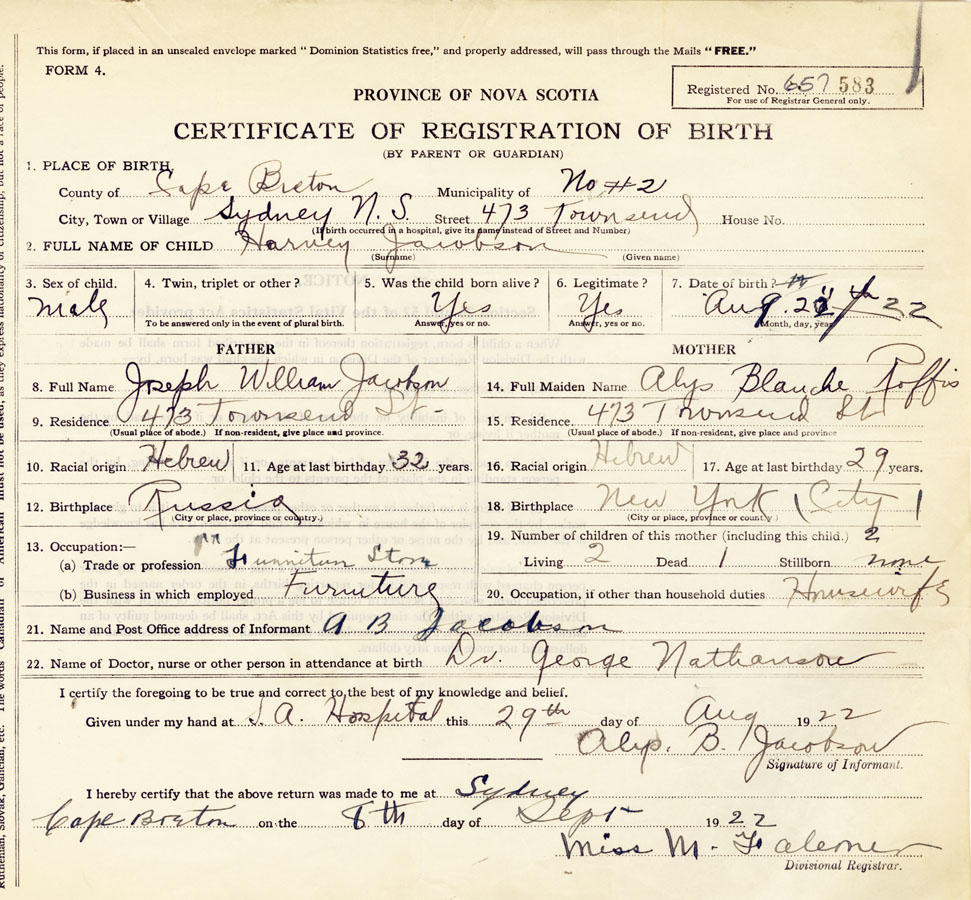 This form, if placed in an unsealed envelope marked "Dominion Statistics free," and properly addressed, will pass through the Mails "FREE."
FORM 4.
Registered No. 657 583
For use of Registrar General only.
PROVINCE OF NOVA SCOTIA
CERTIFICATE OF REGISTRATION OF BIRTH
(BY PARENT OR GUARDIAN)
1. PLACE OF BIRTH
County of Cape Breton Municipality of No #2
City, Town or Village Sydney N. S. Street 473 Townsend House No.
(If birth occurred in a hospital, give its name instead of Street and Number)
2. FULL NAME OF CHILD Harvey Jacobson
(Surname) (Given name)
3. Sex of child. 4. Twin, triplet or other? 5. Was the child born alive? 6. Legitimate? 7. Date of birth?
Male Yes Yes Aug. 22
To be answered only in the event of plural birth. Answer, yes or no. Answer, yes or no. Month, day, year
FATHER MOTHER
8. Full Name Joseph William Jacobson 14. Full Maiden Name Alys Blanche Roffis
9. Residence 473 Townsend St- 15. Residence 473 Townsend St
(Usual place of abode.) If non-resident, give place and province. (Usual place of abode.) If non-resident, give place and province
10. Racial origin Hebrew 11. Age at last birthday 32 years. 16. Racial origin Hebrew 17. Age at last birthday 29 years.
12. Birthplace Russia 18. Birthplace New York (City)
(City or place, province or country.) (City or place, province or country)
13. Occupation:— 19. Number of children of this mother (including this child.) 2
(a) Trade or profession Furniture Store Living 2 Dead 1 Stillborn none
(b) Business in which employed Furniture 20. Occupation, if other than household duties Housewife
21. Name and Post Office address of Informant A B Jacobson
22. Name of Doctor, nurse or other person in attendance at birth Dr. George Nathanson
I certify the foregoing to be true and correct to the best of my knowledge and belief.
Given under my hand at S. A. Hospital this 29th day of Aug 1922
Alys. B. Jacobson
Signature of Informant.
I hereby certify that the above return was made to me at Sydney
Cape Breton on the 8th day of Sept 1922
Miss M. Falconer
Divisional Registrar.